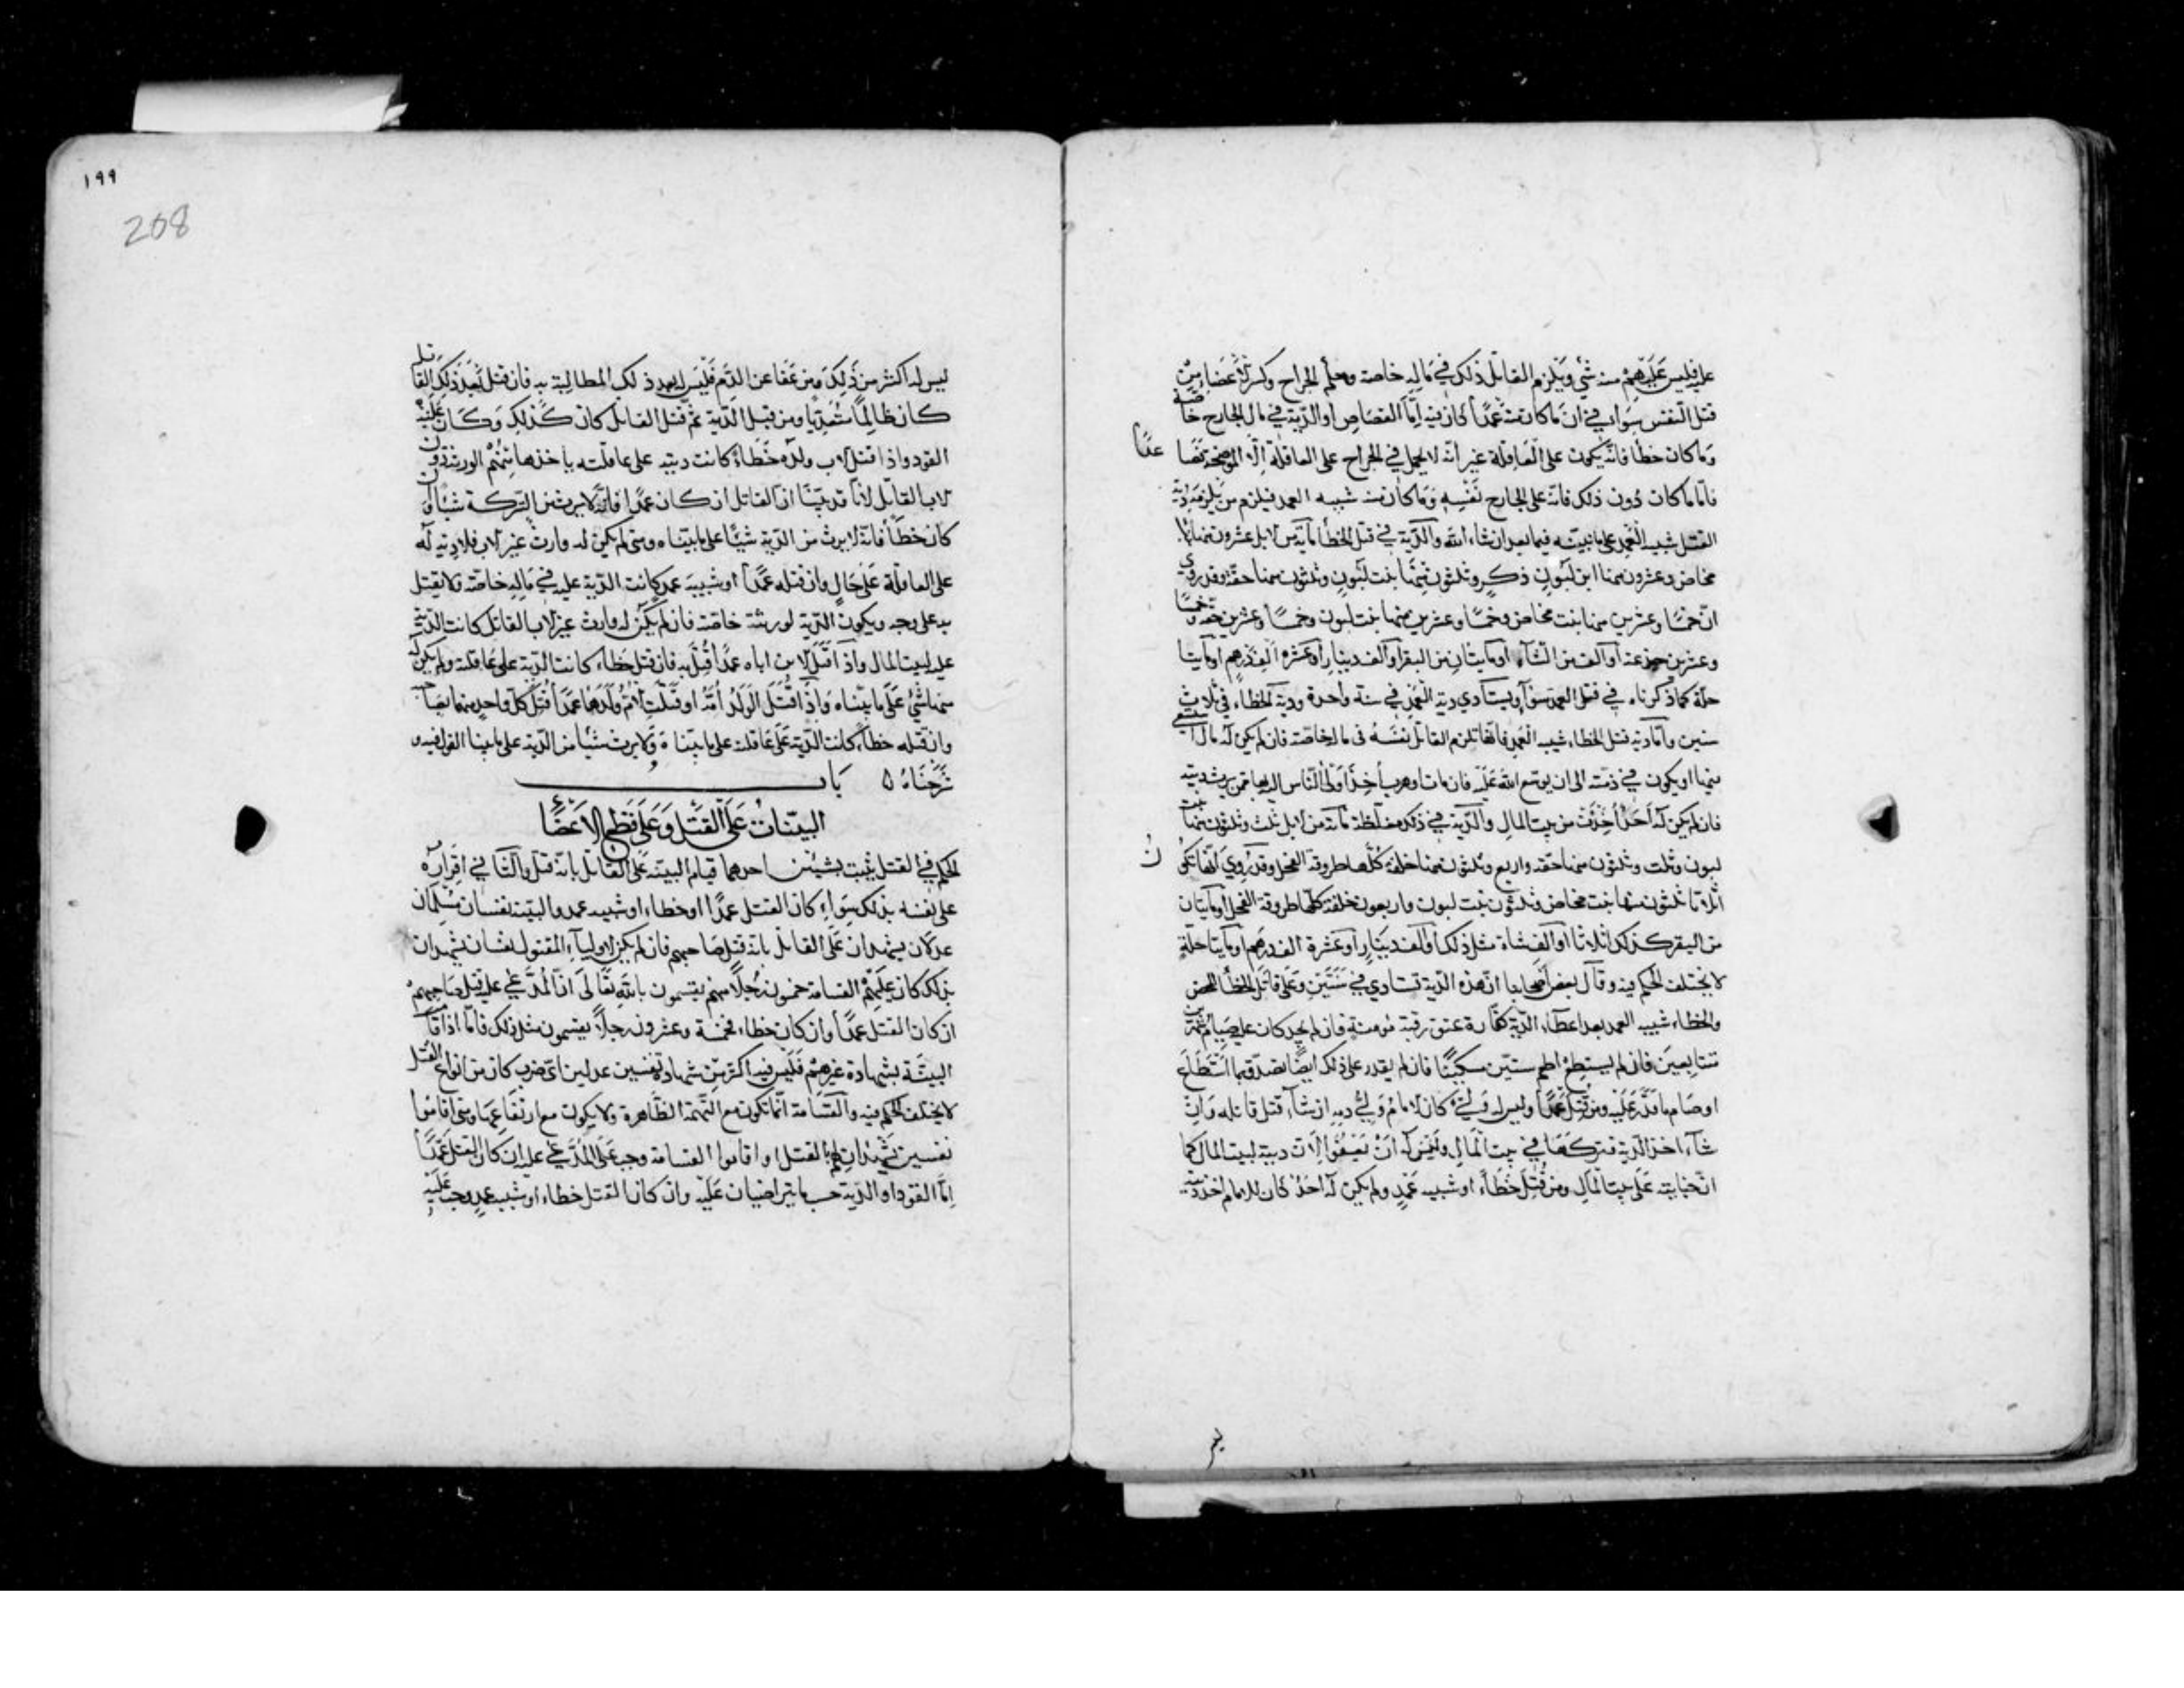 عليه فليس عليهم منه شيء ويلزم القاتل ذلك في ماله خاصة وحكم الجراح وكسر الاعضاء من
قتل النفس سواء في ان ما كان منه عمداً كان فيه اما القصاص او الدية في مال الجارح خاصة
وما كان خطأ فانه يكون على العاقلة غير انه لا يحمل في الجراح على العاقلة الا الموضحة فصاعدا
فاما ما كان دون ذلك فانه على الجارح نفسه وما كان منه شبيه العمد فيلزم من يلزمه دية
القتل شبيه العمد على ما نبينه فيما بعد ان شاء الله والدية في قتل الخطأ مائة من الابل عشرون منها بنت
مخاض وعشرون منها ابن لبون ذكر وثلثون منها بنت لبون وثلثون منها حقة وقد روي
ان خمسا وعشرين منها بنت مخاض وخمسا وعشرين منها بنت لبون وخمسا وعشرين حقة وخمسا
وعشرين جزعة او الف من الشاء او مايتان من البقر او الف دينار او عشرة الف درهم او مايتا
حلة كما ذكرناه في قتل العمد سواء ويستادي دية العمد في سنة واحدة ودية الخطاء في ثلاث
سنين واما دية قتل الخطاء شبيه العمد فانها تلزم القاتل نفسه في ماله خاصة فان لم يكن له مال استسعي
فيها او يكون في ذمته الى ان يوسع الله عليه فان مات او هرب أخذ اولى الناس اليه بها ممن يرث ديته
فان لم يكن له أحد أخذت من بيت المال والدية في ذلك مغلظة مائة من الابل ثلث وثلثون منها بنت
لبون وثلث وثلثون منها حقة واربع وثلثون منها خلفة كلها طروقة الفحل وقد روي انها تكون
أثلاثا ثلثون منها بنت مخاض وثلثون بنت لبون واربعون خلفة كلها طروقة الفحل او مايتان
من البقر كذلك اثلاثا او الف شاة مثل ذلك او الف دينار او عشرة الف درهم او مايتا حلة
لا يختلف الحكم فيه وقال بعض أصحابنا ان هذه الدية تستادي في سنتين وعلى قاتل الخطأ المحض
والخطاء شبيه العمد بعد اعطاء الدية كفارة عتق رقبة مومنة فان لم يجد كان عليه صيام شهرين
متتابعين فان لم يستطع اطعم ستين مسكينا فان لم يقدر على ذلك ايضا تصدق بما استطاع
او صام ما قدر عليه ومن قتل عمدا وليس له ولي كان الامام ولي دمه ان شاء قتل قاتله وان
شاء اخذ الدية فتركها في بيت المال وليس له ان يعفوا لان ديته لبيت المال كما
ان جنايته على بيت المال ومن قتل خطأ او شبيه عمد ولم يكن له احد كان للامام اخذ ديته
ليس
١٩٩
208
ليس له اكثر من ذلك ومن عفا عن الدم فليس له بعد ذلك المطالبة به فان قتل بعد ذلك القاتل
كان ظالما متعديا ومن قبل الدية ثم قتل القاتل كان كذلك وكان عليه
القود واذا قتل الاب ولده خطأ كانت ديته على عاقلته يأخذها منهم الورثة دون
الاب القاتل لانا قد بينا ان القاتل ان كان عمدا فانه لا يرث من التركة شيئا وان
كان خطأ فانه لا يرث من الدية شيئا على ما بيناه ومتى لم يكن له وارث غير الاب فلا دية له
على العاقلة على حال وان قتله عمدا او شبيه عمد كانت الدية عليه في ماله خاصة ولا يقتل
به على وجه ويكون الدية لورثته خاصة فان لم يكن له وارث غير الاب القاتل كانت الدية
عليه لبيت المال واذا قتل الابن اباه عمدا قتل به فان قتله خطاء كانت الدية على عاقلته ولم يكن له
منها شيء على ما بيناه واذا قتل الولد أمه او قتلت الام ولدها عمدا قتل كل واحد منهما بصاحبه
وان قتله خطأ كانت الدية على عاقلته على ما بيناه ولا يرث شيئا من الدية على ما بينا القول فيه و
شرحناه ه باب
البينات على القتل وعلى قطع الاعضاء
الحكم في القتل يثبت بشيئين احدهما قيام البينة على القاتل بانه قتل والثاني اقراره
على نفسه بذلك سواء كان القتل عمدا او خطاء او شبيه عمد والبينة نفسان مسلمان
عدلان يشهدان على القاتل بانه قتل صاحبهم فان لم يكن لاولياء المقتول نفسان يشهدان
بذلك كان عليهم القسامة خمسون رجلا منهم يقسمون بالله تعالى ان المدعي عليه قتل صاحبهم
ان كان القتل عمدا وان كان خطاء فخمسة وعشرون رجلا يقسمون مثل ذلك فاما اذا قامت
البينة بشهادة غيرهم فليس فيه اكثر من شهادة نفسين عدلين اى ضرب كان من انواع القتل
لا يختلف الحكم فيه والقسامة انما تكون مع التهمة الظاهرة ولا يكون مع ارتفاعها ومتى اقاموا
نفسين يشهدان لهم بالقتل او اقاموا القسامة وجب على المدعي عليه ان كان القتل عمدا
اما القود او الدية حسب ما يتراضيان عليه وان كان القتل خطاء او شبيه عمد وجب عليه